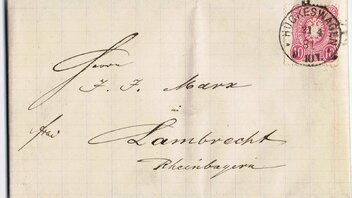 HÜCKESWAGEN
21 4
10 V.
10
Herrn
J. J. Marx
in
frei
Lambrecht
Rheinbayern